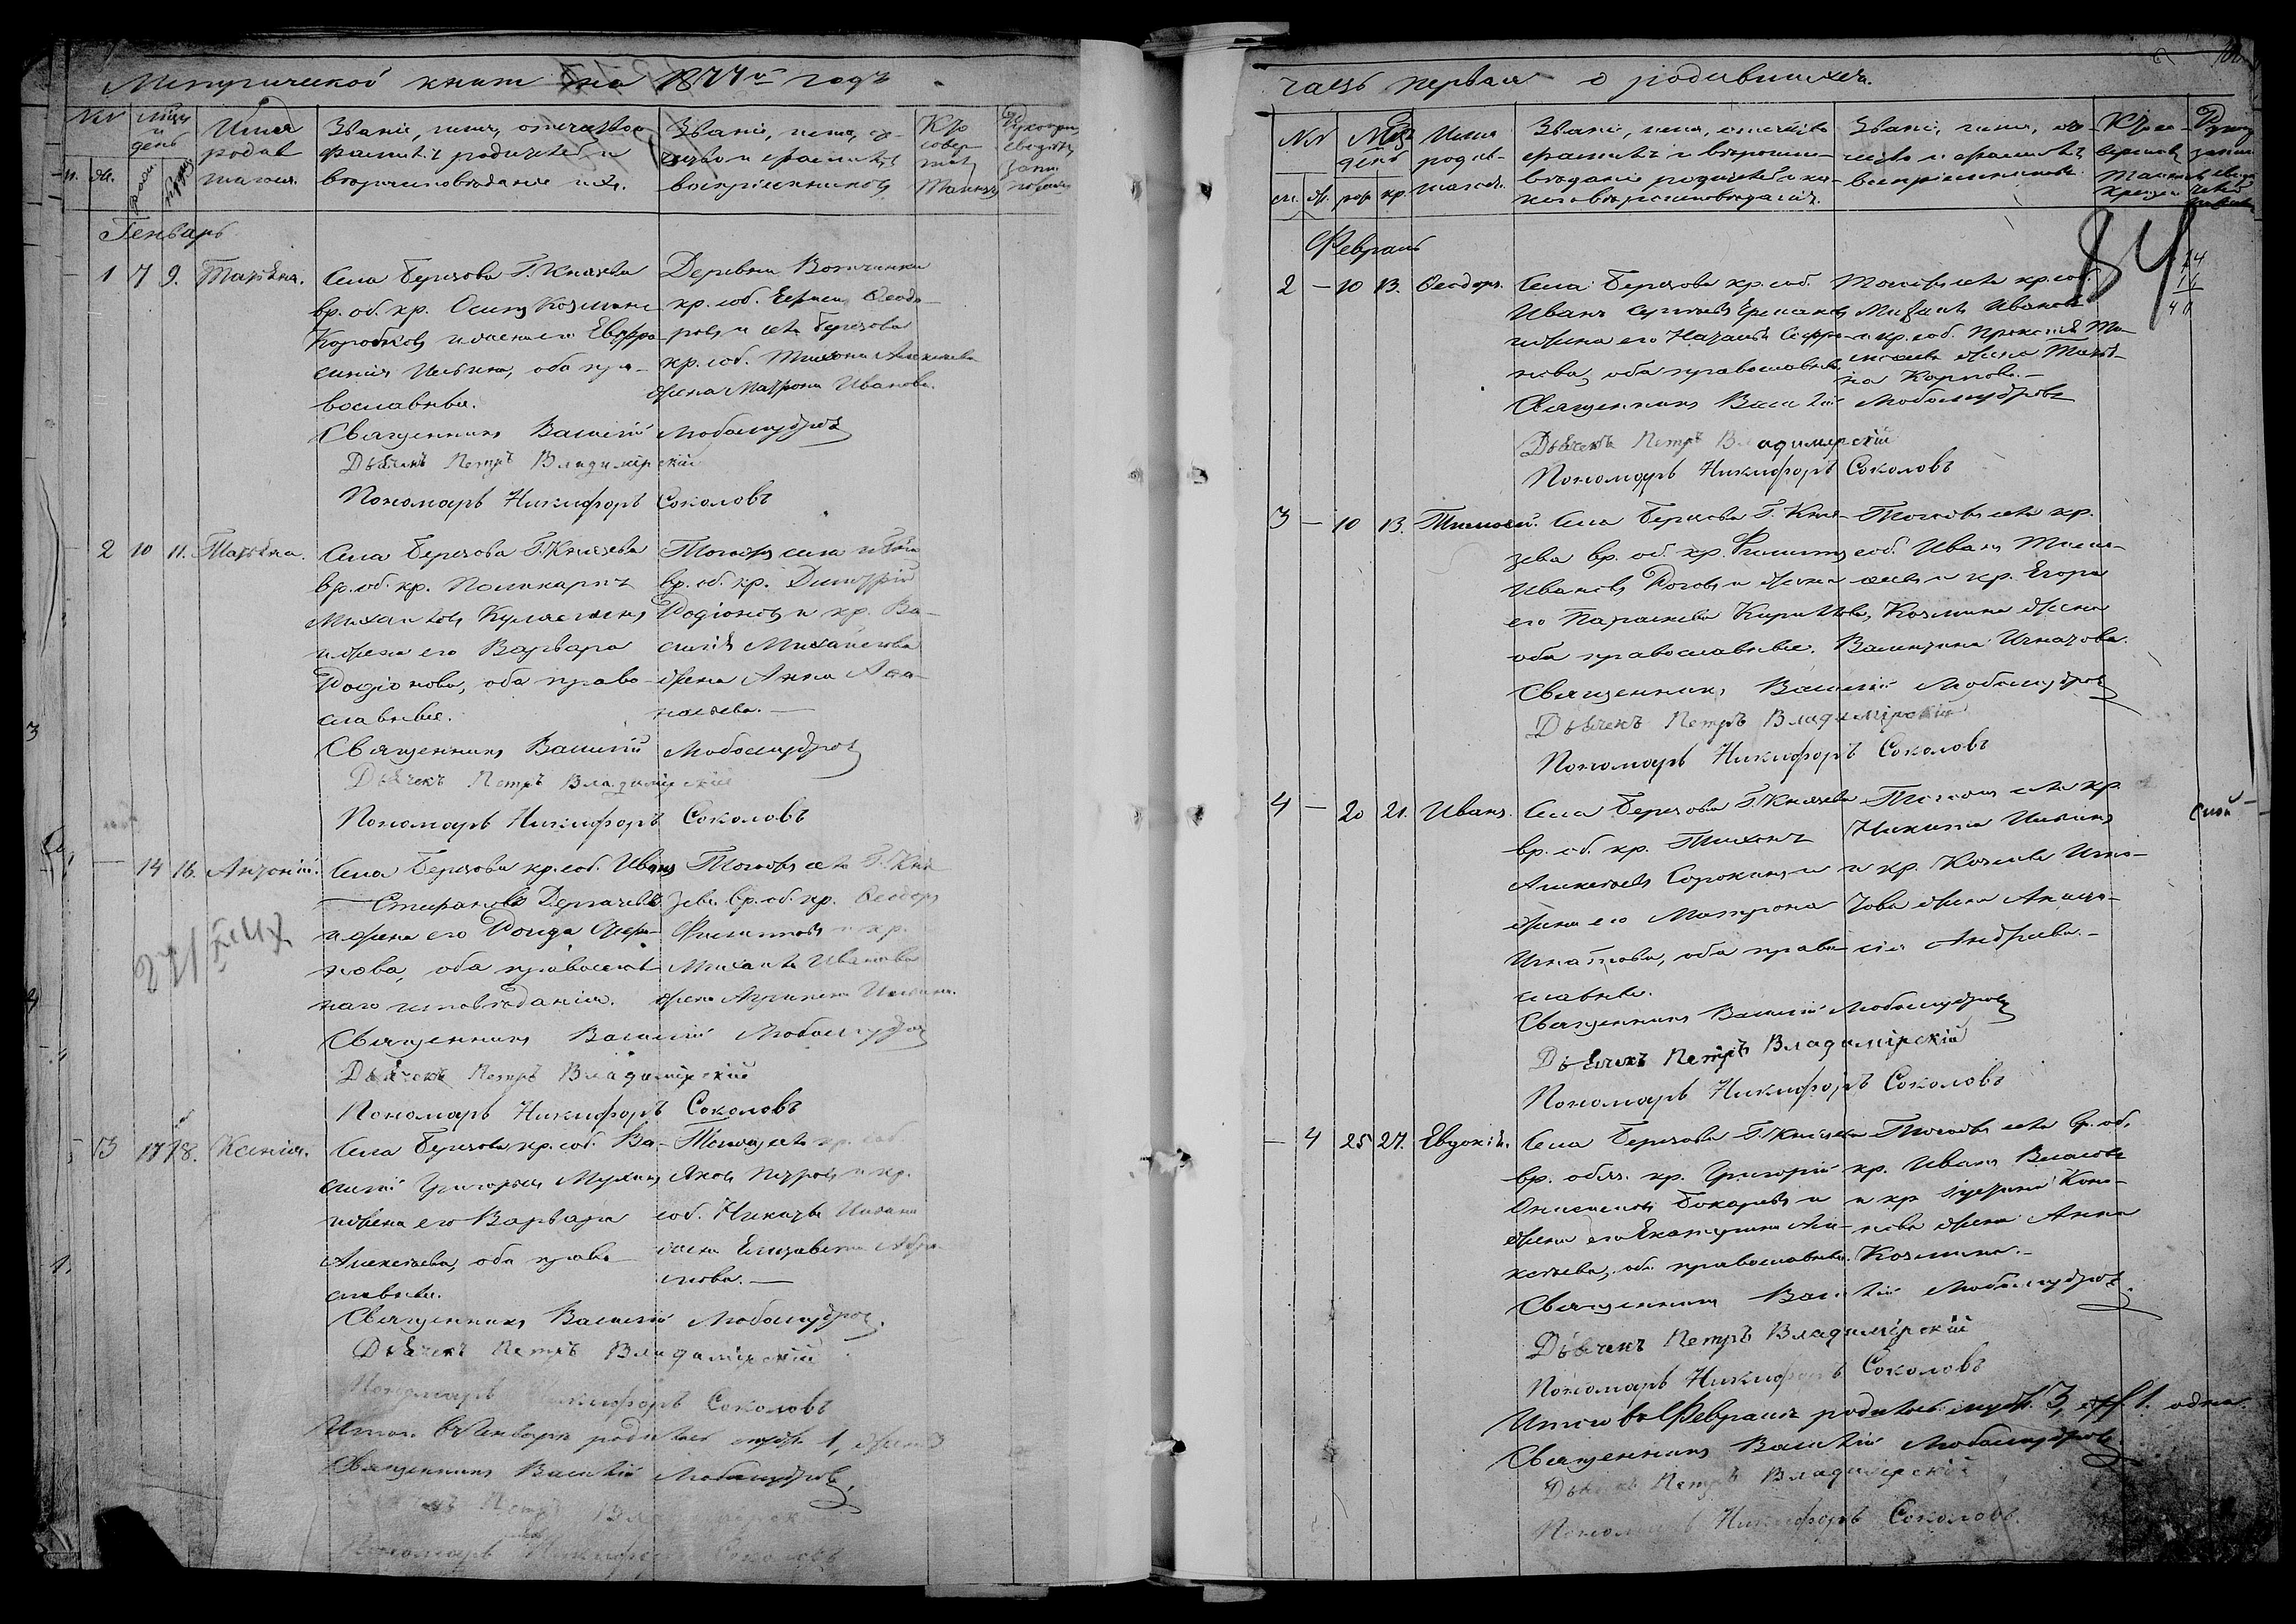 Метрической книги на 1874й годъ
NN
Мцъ и день
Имя родив шагося.
Званіе, имя, отчество
фамилія родителей и
вѣроисповѣданіе ихъ.
Званіе, имя, от-
чество и фамилія
воспріемниковъ
Кто совер шалъ Таинст
м. ж.
Генварь
1 7 9. Татьяна.
Села Березова Г. Князева
вр. об. кр. Осипъ Козминъ
Коробковъ и жена его Евфро
синія Ильина, оба пра-
вославные.
Деревни
кр. соб. Феодо-
ровъ и села Березова
кр. соб. Тихона Алексѣева
жена Матрона Иванова.
Священникъ Василій Любомудровъ
Дьячекъ Петръ Владимірскій
Пономарь Никифоръ Соколовъ
2 10 11. Татьяна.
Села Березова Г. Князева
вр. об. кр. Поликарпъ
Михаиловъ
и жена его Варвара
Родіонова, оба право-
славные.
Тогожъ села
вр. об. кр. Димитрій
Родіоновъ и кр. Ва-
силія Михайлова
жена Анна Афа-
насьева.
Священникъ Василій Любомудровъ
Дьячекъ Петръ Владимірскій
Пономарь Никифоръ Соколовъ
14 16. Антоній.
Села Березова кр. соб. Иванъ
Стефановъ
и жена его
нова, оба православ
наго исповѣданія.
Тогожъ села Г. Кня
зева вр. об. кр. Феодоръ
Филипповъ и кр.
Михаила Иванова
жена Агрипина Ильина.
Священникъ Василій Любомудровъ
Дьячекъ Петръ Владимірскій
Пономарь Никифоръ Соколовъ
3 17 18. Ксенія.
Села Березова кр. соб. Ва-
силій Григорьевъ Мухинъ
и жена его Варвара
Алексѣева, оба право
славные.
Тогожъ села кр. соб
Яковъ Петровъ и кр.
соб. Никиты Ильина
жена Елизавета Абра-
мова.
Священникъ Василій Любомудровъ
Дьячекъ Петръ Владимірскій
Пономарь Никифоръ Соколовъ
Итого въ Генварѣ родилось муж. 1, жен. 3
Священникъ Василій Любомудровъ
Петръ
Пономарь Никифоръ Соколовъ
часть первая о родившихся.
NN
Мцъ день
Имя родив- шагося.
Званіе, имя, отчество
фамилія и вѣроиспо-
вѣданіе родителей и ка-
кого вѣроисповѣданія.
Званіе, имя, от-
чество и фамилія
воспріемниковъ
м. ж. род кр.
84
Февраль
2 — 10 13. Феодоръ.
Села Березова кр. соб.
Иванъ Сергѣевъ
и жена его Наталія Софро-
нова, оба православные
Тогожъ села кр. соб.
Михаилъ Ивановъ
и кр. соб. Прокопія Ти-
моѳеева жена Татья-
на Карпова.
Священникъ Василій Любомудровъ
Дьячекъ Петръ Владимірскій
Пономарь Никифоръ Соколовъ
3 — 10 13. Тимоѳей.
Села Березова Г. Кня-
зева вр. об. кр. Филиппъ
Ивановъ Роговъ и жена
его Параскева Кирилова,
оба православные.
Тогожъ села кр.
соб. Иванъ Тимо-
ѳеевъ и кр. Егора
Козмина жена
Валентина Игнатова.
Священникъ Василій Любомудровъ
Дьячекъ Петръ Владимірскій
Пономарь Никифоръ Соколовъ
4 — 20 21. Иванъ.
Села Березова Г. Князева
вр. об. кр. Тихонъ
Алексѣевъ Сорокинъ и
жена его Матрона
Игнатова, оба право-
славные.
Тогожъ села кр.
Никита Ильинъ
и кр. Козмы Игна-
това жена Анаста-
сія Андреева.
Священникъ Василій Любомудровъ
Дьячекъ Петръ Владимірскій
Пономарь Никифоръ Соколовъ
— 4 25 27. Евдокія.
Села Березова Г. Князева
вр. обяз. кр. Григорій
Онисимовъ Бокаревъ и
жена его Екатерина Али-
ксѣева, оба православные.
Тогожъ села вр. об.
кр. Иванъ Власовъ
и кр.
нова жена Анна
Козмина.
Священникъ Василій Любомудровъ
Дьячекъ Петръ Владимірскій
Пономарь Никифоръ Соколовъ
Итого въ Февралѣ родилось муж. 3, ж. 1. одна.
Священникъ Василій Любомудровъ
Петръ Владимірскій
Пономарь Никифоръ Соколовъ.